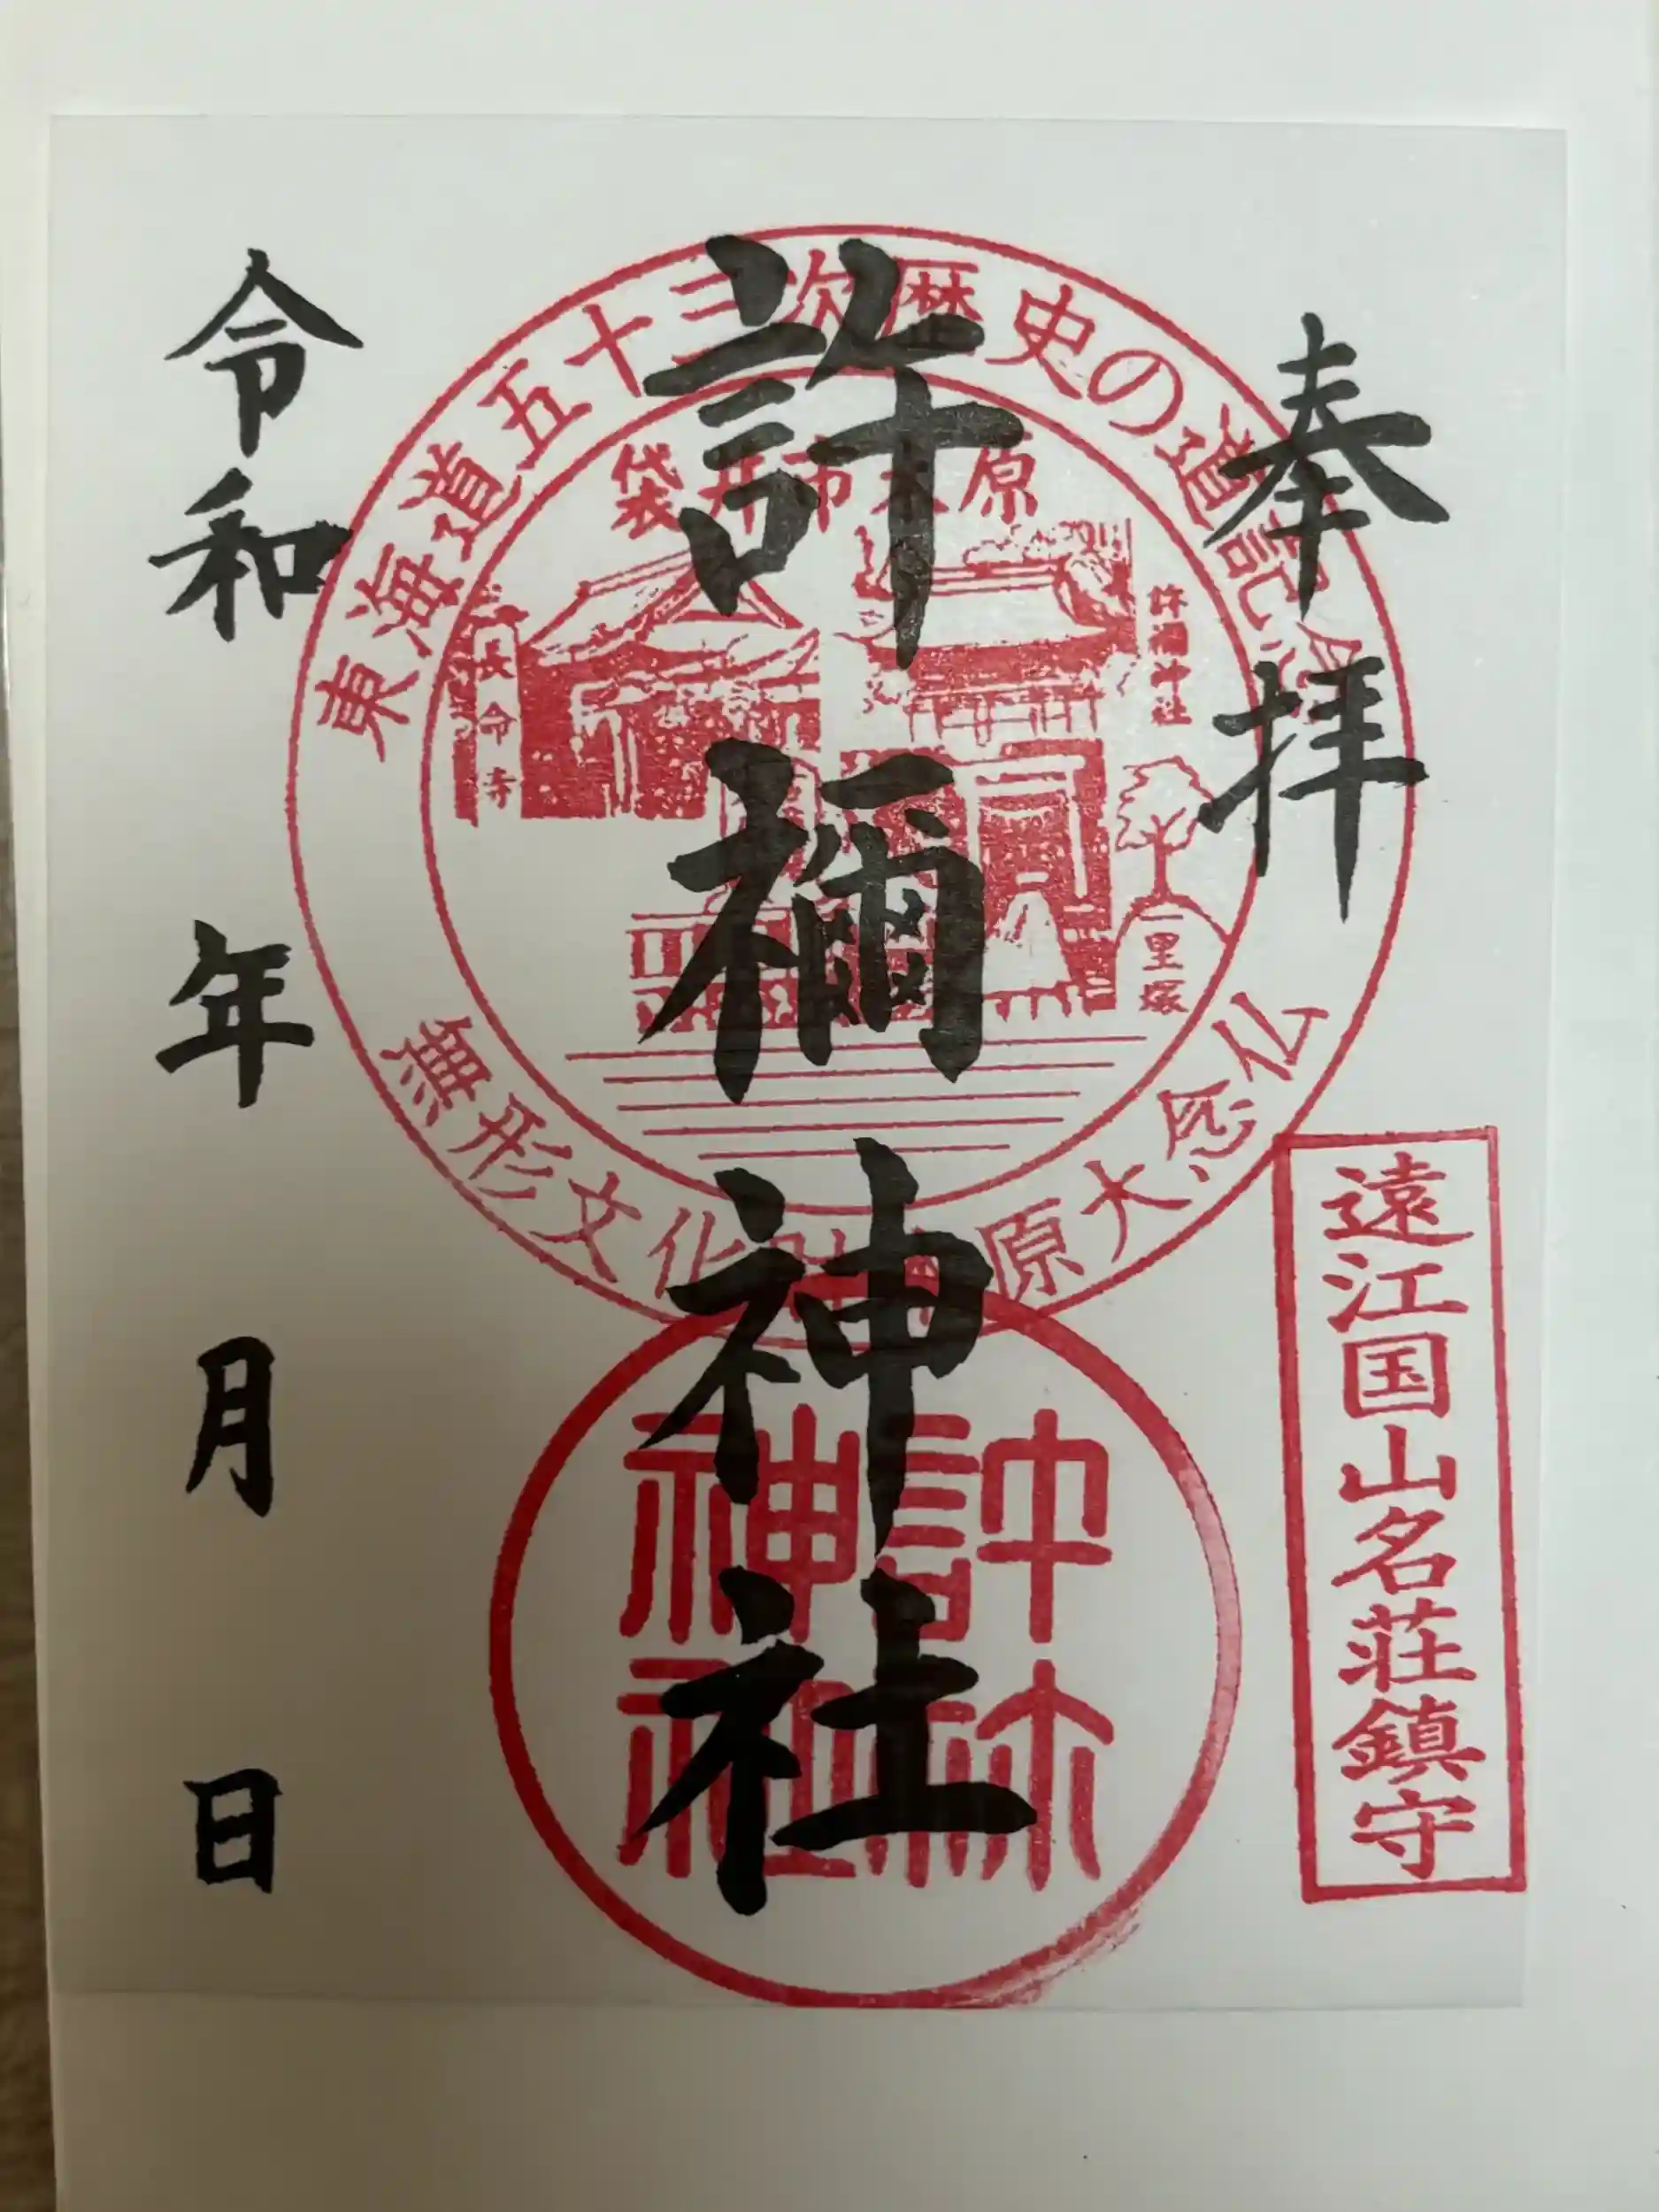 奉拝
許禰神社
令和 年 月 日
東海道五十三次歴史の道記念
袋井市木原
長命寺
許禰神社
一里塚
無形文化財 原大念仏
遠江国山名荘鎮守
許禰神社